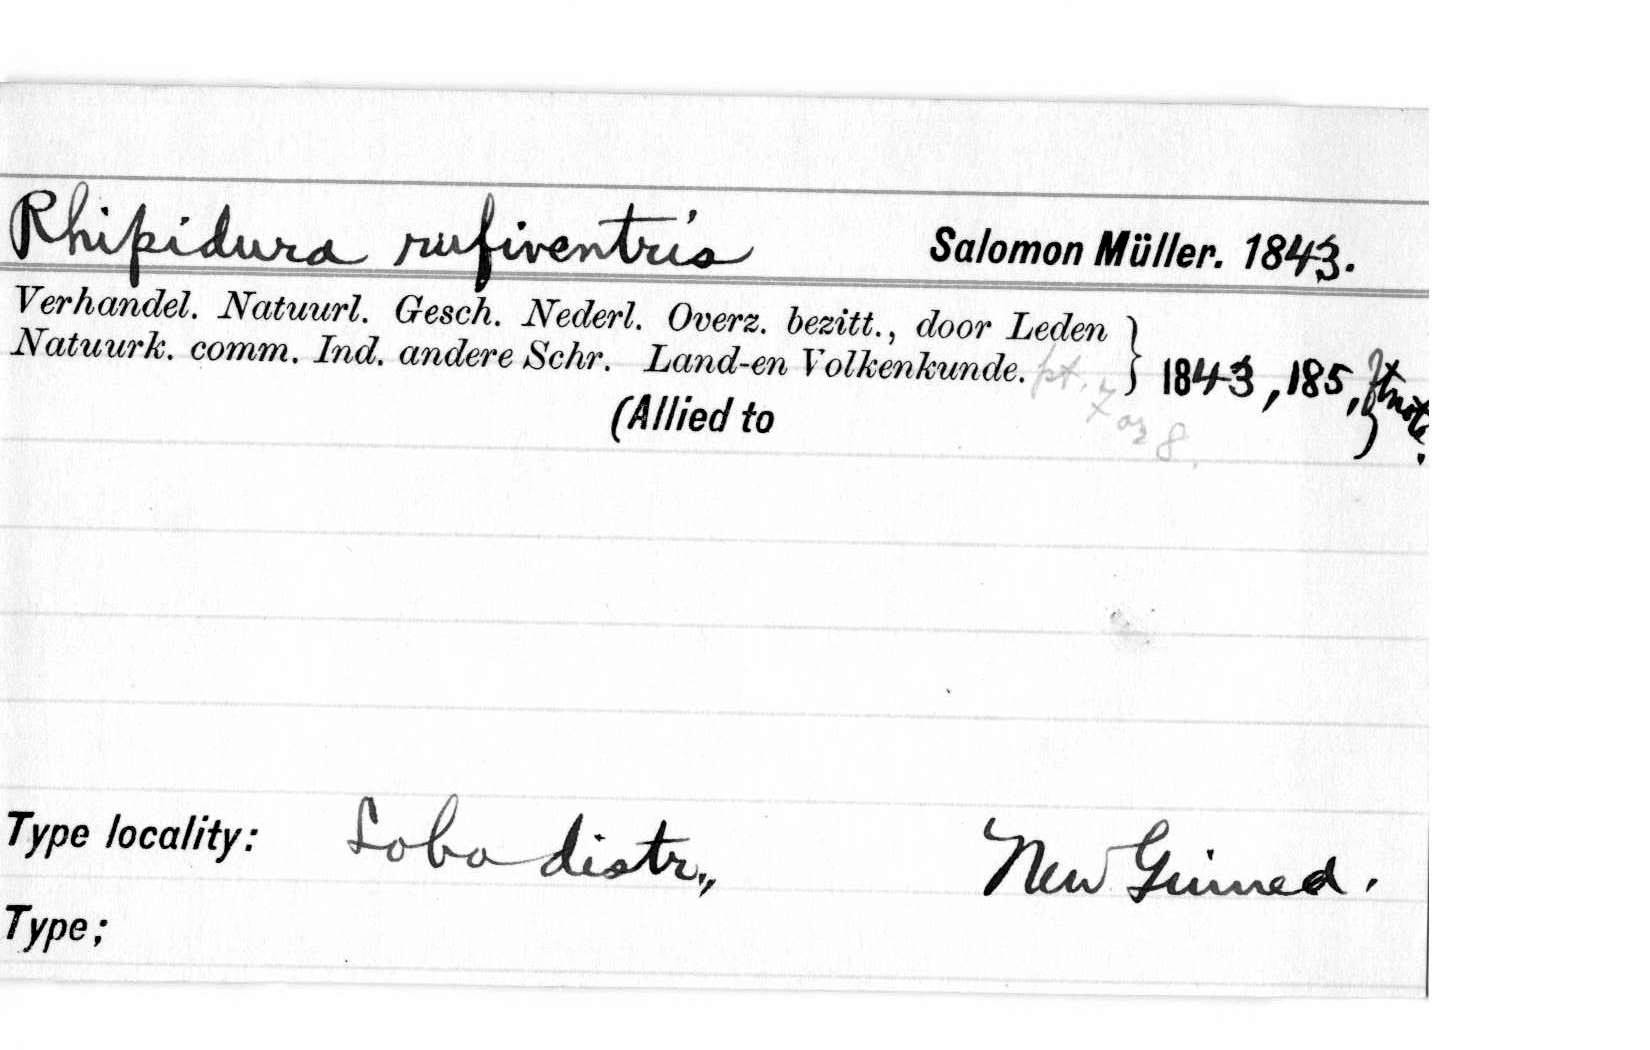 Rhipidura rufiventris Salomon Müller. 1843.
Verhandel. Natuurl. Gesch. Nederl. Overz. bezitt., door Leden
Natuurk. comm. Ind. andere Schr. Land-en Volkenkunde. } 1843, 185, ftnote.
pt. 7 or 8.
(Allied to )
Type locality: Lobo distr., New Guinea.
Type;